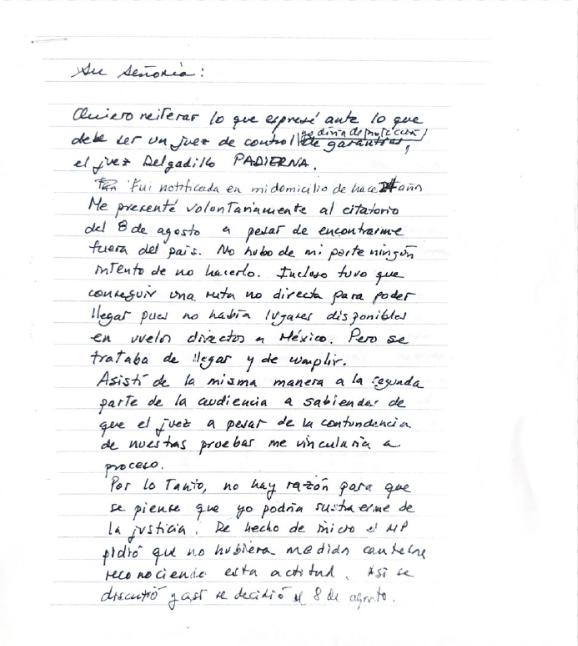 Su Señoría:
Quiero reiterar lo que expresé ante lo que
debe ser un juez de control de garantías,
el juez Delgadillo PADIERNA.
Fui notificada en mi domicilio de hace año
Me presenté voluntariamente al citatorio
del 8 de agosto a pesar de encontrarme
fuera del país. No hubo de mi parte ningún
intento de no hacerlo. Incluso tuve que
conseguir una ruta no directa para poder
llegar pues no había lugares disponibles
en vuelos directos a México. Pero se
trataba de llegar y de cumplir.
Asistí de la misma manera a la segunda
parte de la audiencia a sabiendas de
que el juez a pesar de la contundencia
de nuestras pruebas me vincularía a
proceso.
Por lo Tanto, no hay razón para que
se piense que yo podría sustraerme de
la justicia. De hecho de inicio el MP
pidió que no hubiera medida cautelar
reconociendo esta actitud. Así se
discutió y así se decidió el 8 de agosto.